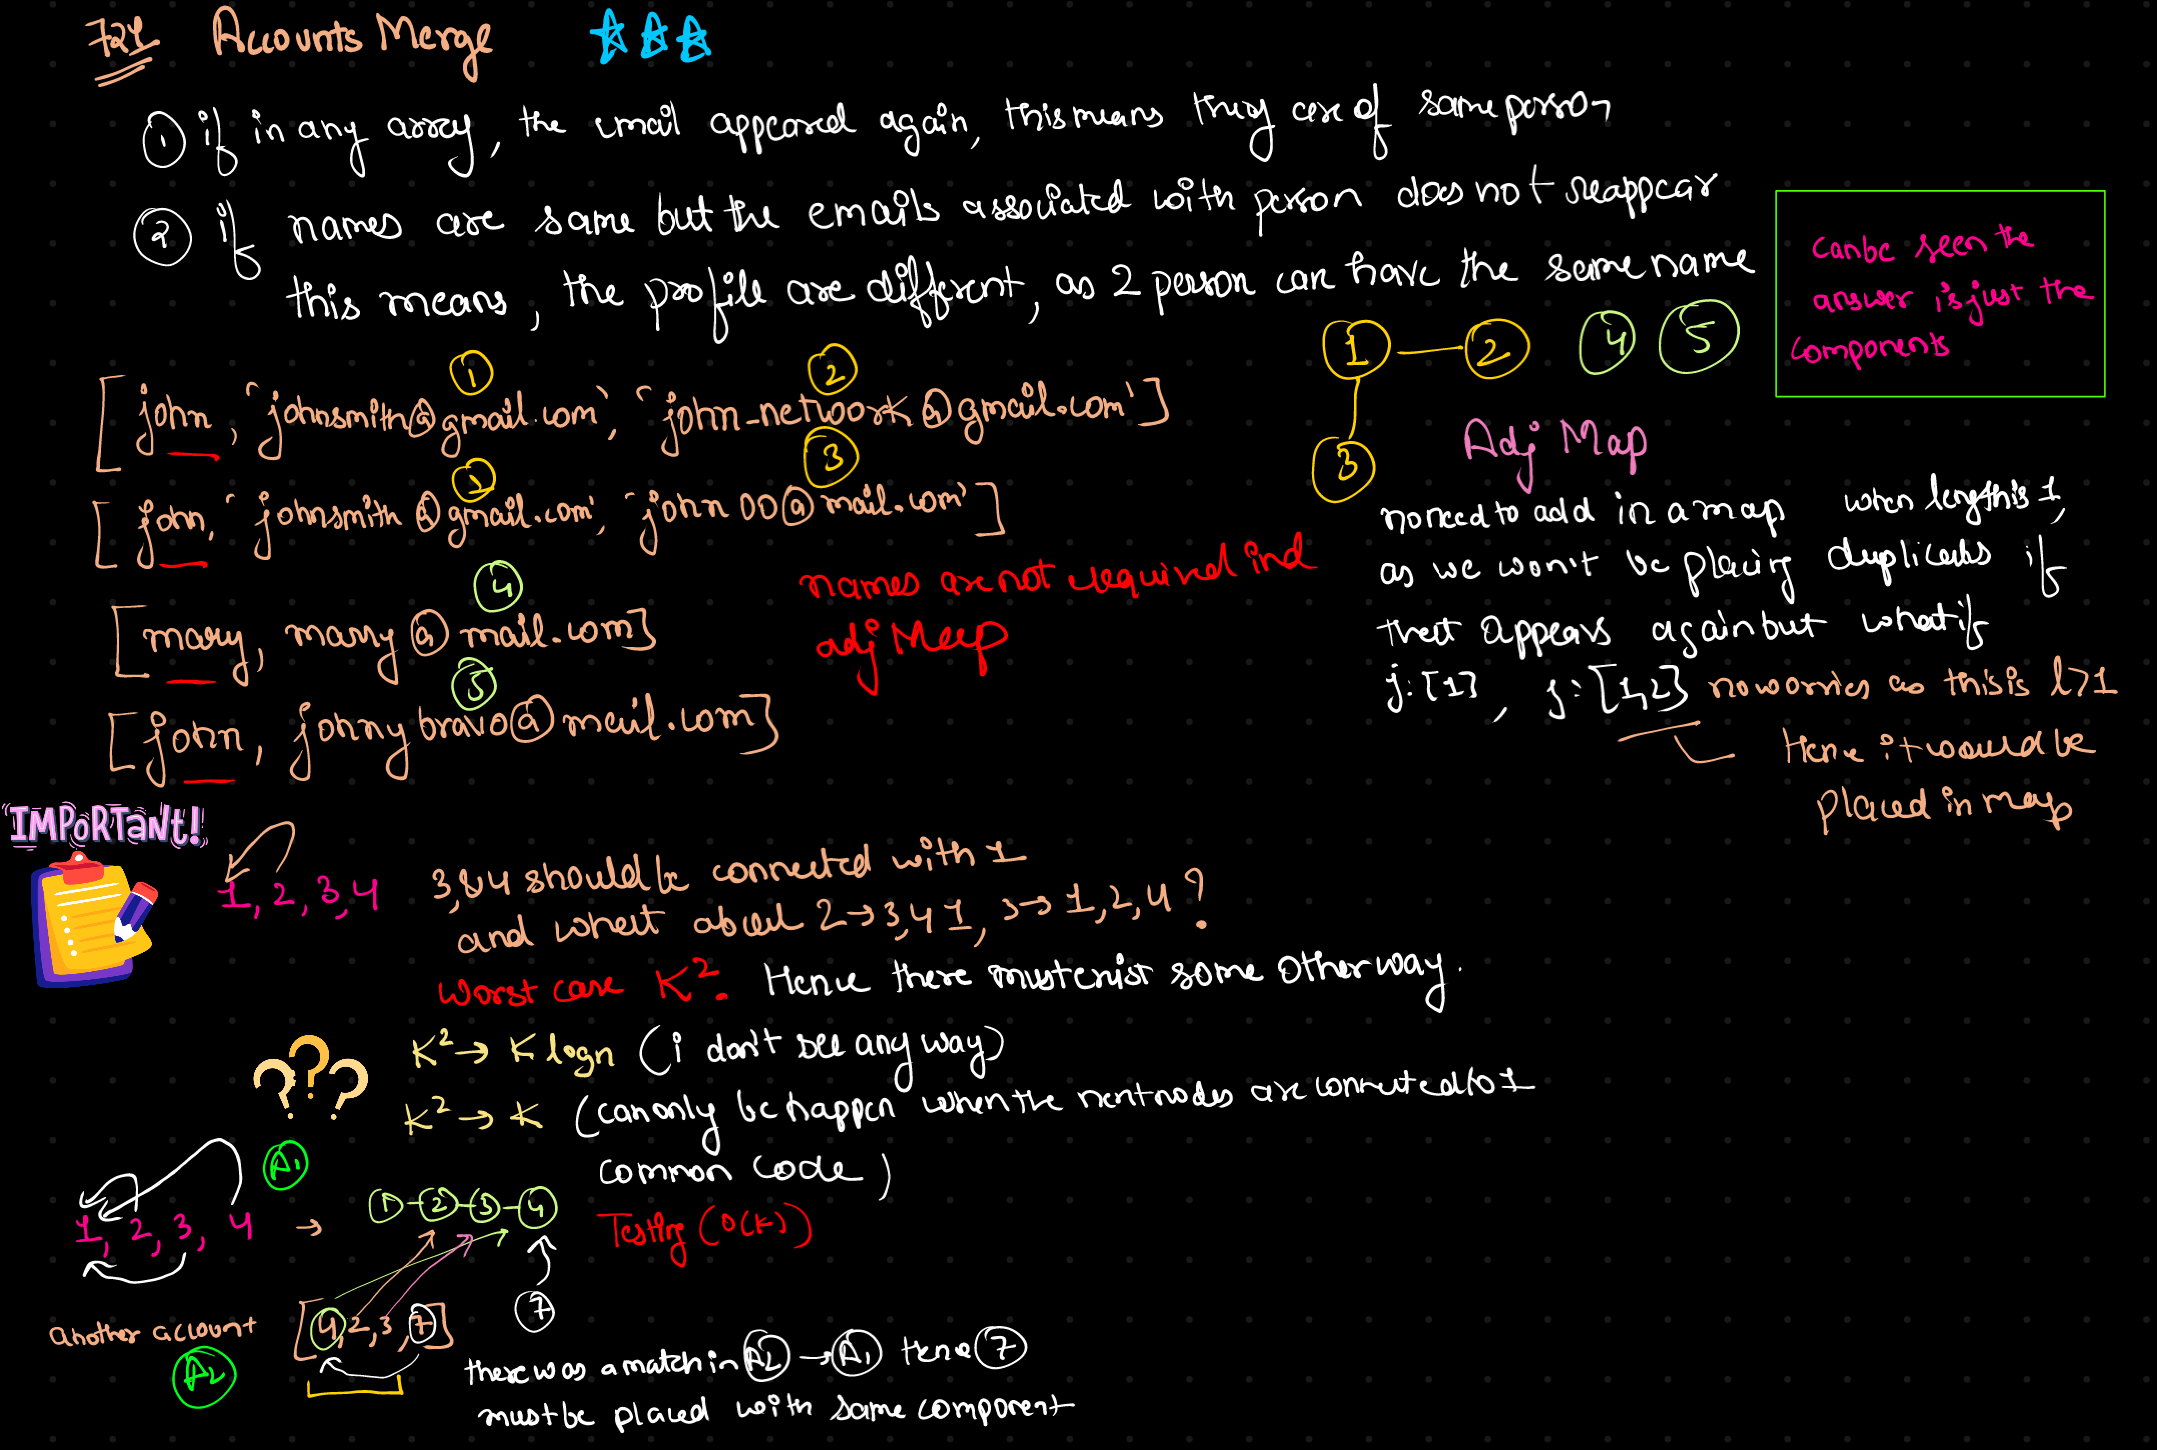 724 Accounts Merge
① if in any array, the email appeared again, this means they are of same person
② if names are same but the emails associated with person does not reappear
this means, the profile are different, as 2 person can have the same name
can be seen the
answer is just the
components
1 2 4 5
3
① ②
[john, 'johnsmith@gmail.com', 'john-network@gmail.com']
① ③
[john, 'johnsmith@gmail.com', 'john00@mail.com']
④
[mary, marry@mail.com]
⑤
[john, johnybravo@mail.com]
names are not required ind
adj Map
Adj Map
no need to add in a map when length is 1,
as we won't be placing duplicates if
that appears again but what if
j:[1], j:[1,2] no worries as this is l>1
Hence it would be
placed in map
IMPORTANT!
1, 2, 3, 4
3,&4 should be connected with 1
and what about 2→3,4 1, 3→1,2,4?
Worst case K². Hence there must exist some other way.
K²→ K logn (i don't see any way)
K²→ K (can only be happen when the next nodes are connected to 1
common code)
???
A1
1, 2, 3, 4 → ①-②-③-④
Testing (O(K))
another account [4,2,3,7] 7
A2
there was a match in A2 → A1 Hence ⑦
must be placed with same component